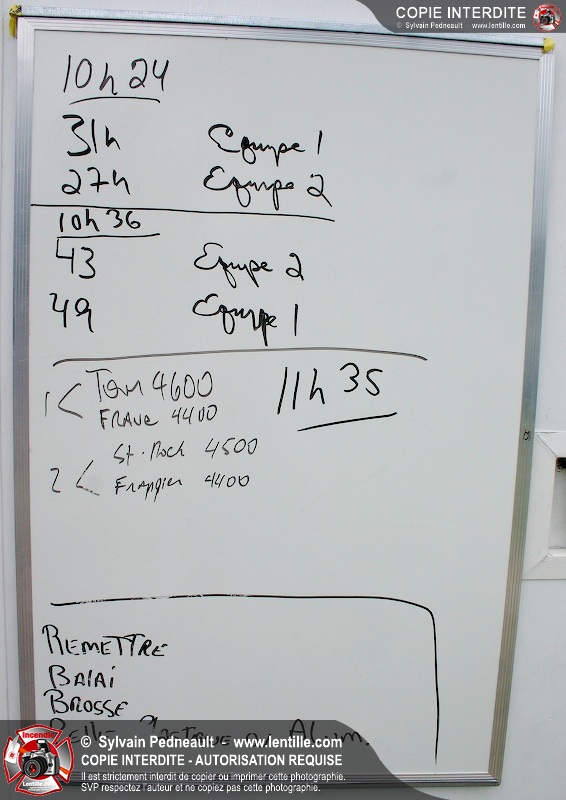 COPIE INTERDITE
© Sylvain Pedneault - www.lentille.com
10h24
31h Equipe 1
27h Equipe 2
10h36
43 Equipe 2
49 Equipe 1
11h35
1 < Tom 4600
4400
2 < St-Roch 4500
Frappier 4400
REMETTRE
BALAI
BROSSE
Pelle Plastique ou Alum.
Incendie
Lentille
© Sylvain Pedneault - www.lentille.com
COPIE INTERDITE - AUTORISATION REQUISE
Il est strictement interdit de copier ou imprimer cette photographie.
SVP respectez l'auteur et ne copiez pas cette photographie.